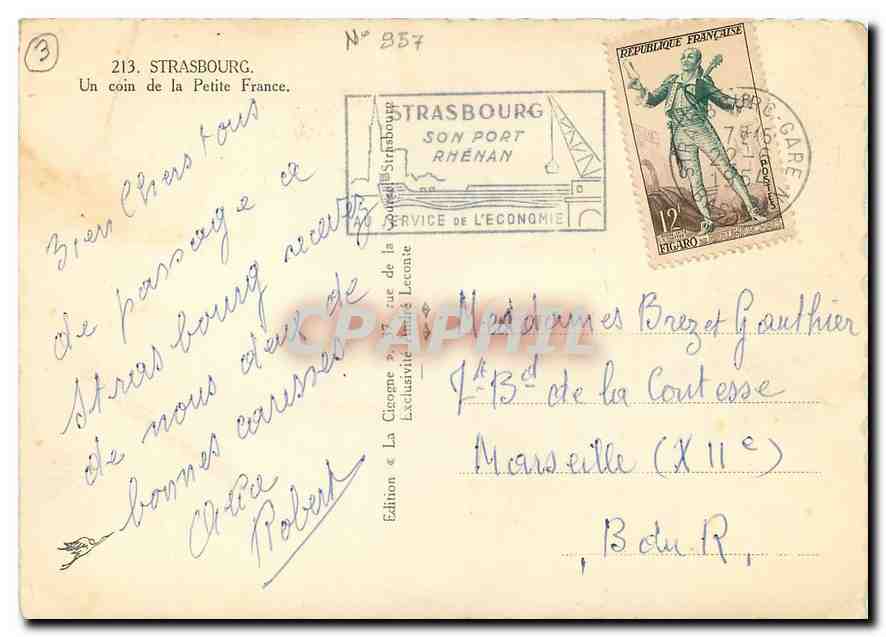 3
N° 957
213. STRASBOURG.
Un coin de la Petite France.
STRASBOURG
SON PORT
RHÉNAN
AU SERVICE DE L'ECONOMIE
REPUBLIQUE FRANÇAISE
POSTES
12F
FIGARO
GARE
Bien Chers tous
de passage a
Strasbourg recevez
de nous deux de
bonnes caresses
Robert
Edition « La Cigogne », rue de la Strasbourg
Exclusivité André Leconte
CPAPHIL
Mesdames Brez et Gauthier
Bd de la Comtesse
Marseille (XIIe)
B du R,